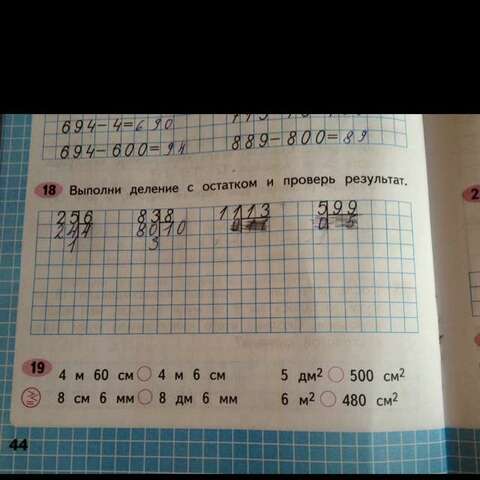 694-4=690
694-600=94 889-800=89
18 Выполни деление с остатком и проверь результат.
256 838 1113 599
244 8010
1 3
19 4 м 60 см 4 м 6 см 5 дм² 500 см²
8 см 6 мм 8 дм 6 мм 6 м² 480 см²
44